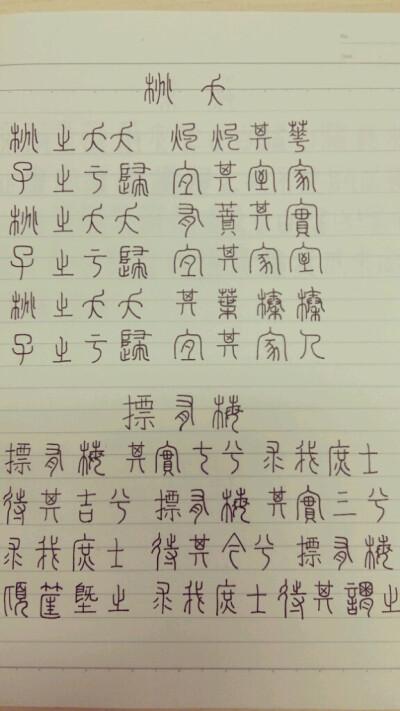 桃夭
桃之夭夭 灼灼其華
子之于歸 宜其室家
桃之夭夭 有蕡其實
子之于歸 宜其家室
桃之夭夭 其葉榛榛
子之于歸 宜其家人
摽有梅
摽有梅 其實七兮 求我庶士
待其吉兮 摽有梅 其實三兮
求我庶士 待其今兮 摽有梅
頃筐塈之 求我庶士 待其謂之